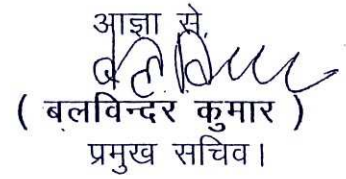 आज्ञा से,
( बलविन्दर कुमार )
प्रमुख सचिव।